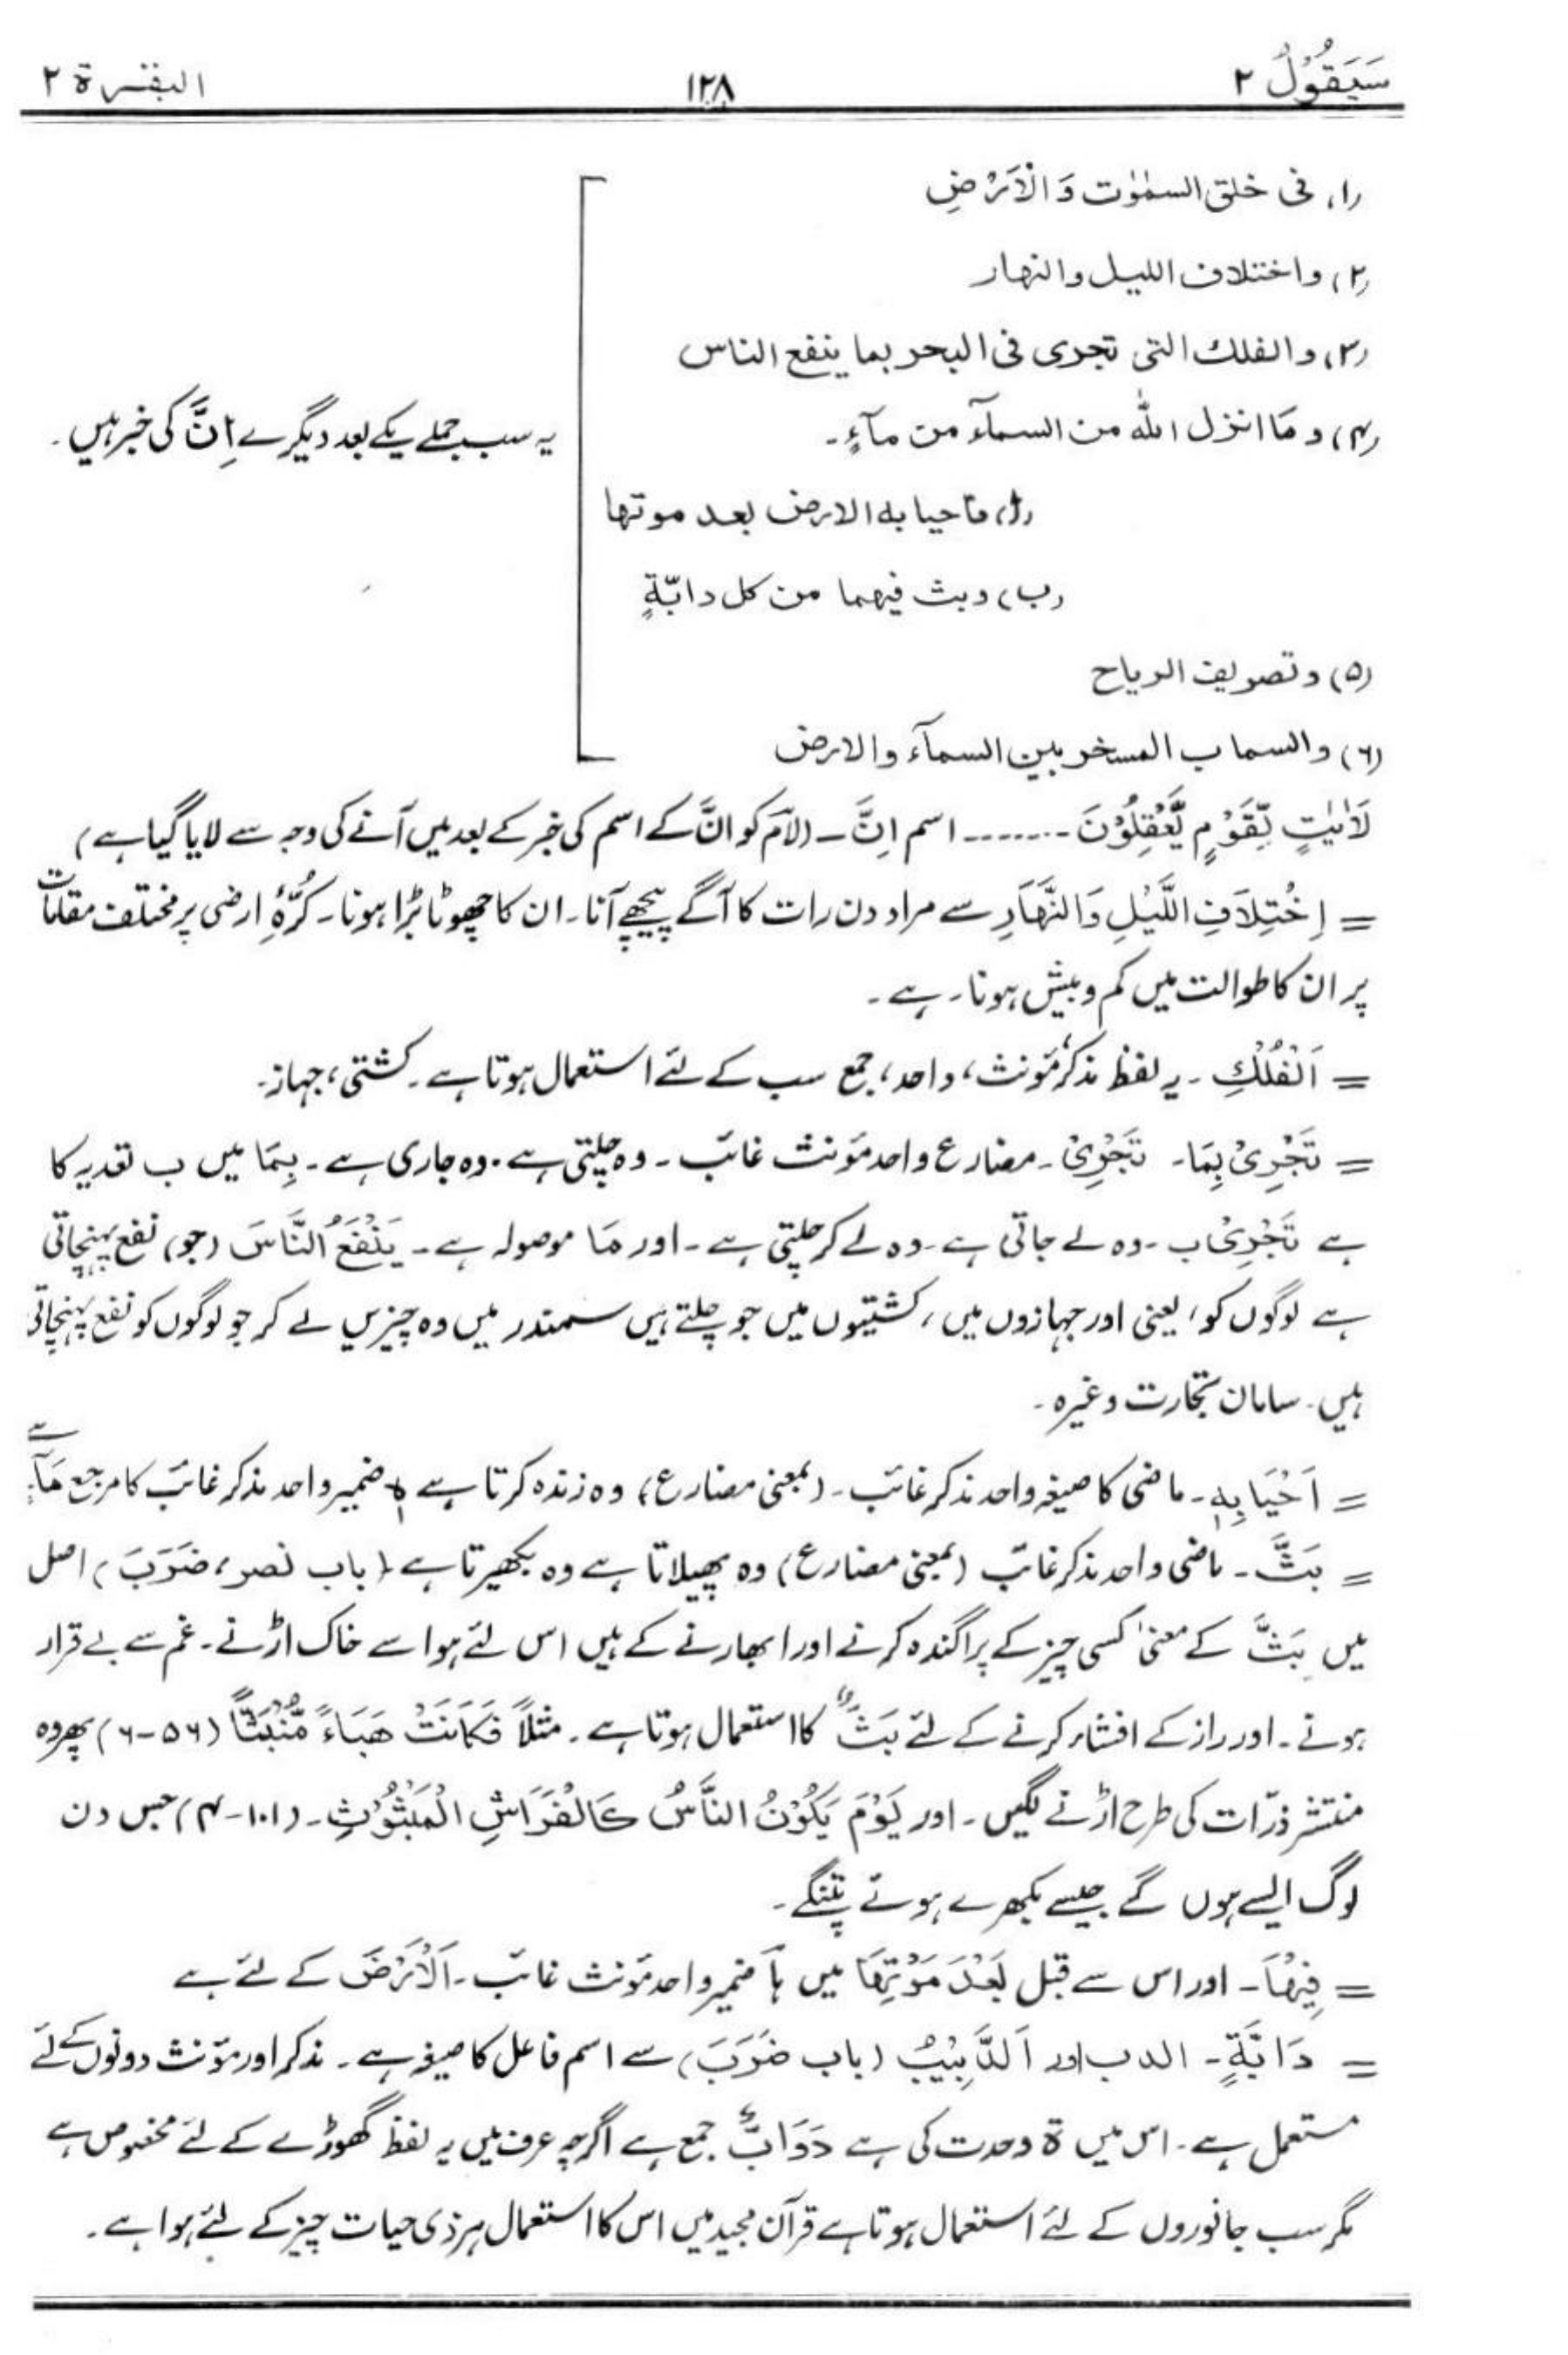 سَيَقُوْلُ ۲ ۱۲۸ البقرة ۲
(۱) فی خلق السمٰوٰت وَالْاَرْضِ
(۲) واختلاف الليل والنهار
(۳) والفلك التی تجری فی البحر بما ينفع الناس
(۴) و مَا انزل الله من السمآء من مآءٍ۔
یہ سب جملے یکے بعد دیگرے اِنَّ کی خبر ہیں۔
(ا) فاحيا به الارض بعد موتها
(ب) وبث فيهما من كل دابّةٍ
(۵) وتصريف الرياح
(۶) والسحاب المسخر بين السمآء والارض
لَاٰيٰتٍ لِّقَوْمٍ يَّعْقِلُوْنَ ۔۔۔۔۔۔۔ اسم اِنَّ ۔ (لآم کو انَّ کے اسم کی خبر کے بعد میں آنے کی وجہ سے لایا گیا ہے)
= اِخْتِلَافِ اللَّيْلِ وَالنَّهَارِ سے مراد دن رات کا آگے پیچھے آنا۔ ان کا چھوٹا بڑا ہونا۔ کُرّۂِ ارضی پر مختلف مقامات
پر ان کا طوالت میں کم و بیش ہونا۔ ہے۔
= اَلْفُلْكِ ۔ یہ لفظ مذکر، مؤنث، واحد، جمع سب کے لئے استعمال ہوتا ہے۔ کشتی، جہاز۔
= تَجْرِیْ بِمَا۔ تَجْرِیْ۔ مضارع واحد مؤنث غائب۔ وہ چلتی ہے۔ وہ جاری ہے۔ بِمَا میں ب تعدیہ کا
ہے تَجْرِیْ ب۔ وہ لے جاتی ہے۔ وہ لے کر چلتی ہے۔ اور مَا موصولہ ہے۔ يَنْفَعُ النَّاسَ (جو) نفع پہنچاتی
ہے لوگوں کو، یعنی اور جہازوں میں، کشتیوں میں جو چلتے ہیں سمندر میں وہ چیزیں لے کر جو لوگوں کو نفع پہنچاتی
ہیں۔ سامان تجارت وغیرہ۔
= اَحْيَا بِهٖ۔ ماضی کا صیغہ واحد مذکر غائب۔ (بمعنی مضارع) وہ زندہ کرتا ہے ہٖ ضمیر واحد مذکر غائب کا مرجع مَآءٍ ہے
= بَثَّ۔ ماضی واحد مذکر غائب (بمعنی مضارع) وہ پھیلاتا ہے وہ بکھیرتا ہے (باب نصر، ضَرَبَ) اصل
میں بَثَّ کے معنیٰ کسی چیز کے پراگندہ کرنے اور ابھارنے کے ہیں اس لئے ہوا سے خاک اڑنے۔ غم سے بے قرار
ہونے۔ اور راز کے افشاء کرنے کے لئے بَثَّ کا استعمال ہوتا ہے۔ مثلاً فَكَانَتْ هَبَاءً مُّنْبَثًّا (۵۶-۶) پھر وہ
منتشر ذرّات کی طرح اڑنے لگیں۔ اور يَوْمَ يَكُوْنُ النَّاسُ كَالْفَرَاشِ الْمَبْثُوْثِ۔ (۱۰۱-۴) جس دن
لوگ ایسے ہوں گے جیسے بکھرے ہوئے پتنگے۔
= فِيْهَا۔ اور اس سے قبل بَعْدَ مَوْتِهَا میں ہا ضمیر واحد مؤنث غائب۔ اَلْاَرْضَ کے لئے ہے
= دَابَّةٍ۔ الدب اور اَلدَّبِيْبُ (باب ضَرَبَ) سے اسم فاعل کا صیغہ ہے۔ مذکر اور مؤنث دونوں کے لئے
مستعمل ہے۔ اس میں ة وحدت کی ہے دَوَابُّ جمع ہے اگرچہ عرف میں یہ لفظ گھوڑے کے لئے مخصوص ہے
مگر سب جانوروں کے لئے استعمال ہوتا ہے قرآن مجید میں اس کا استعمال ہر ذی حیات چیز کے لئے ہوا ہے۔